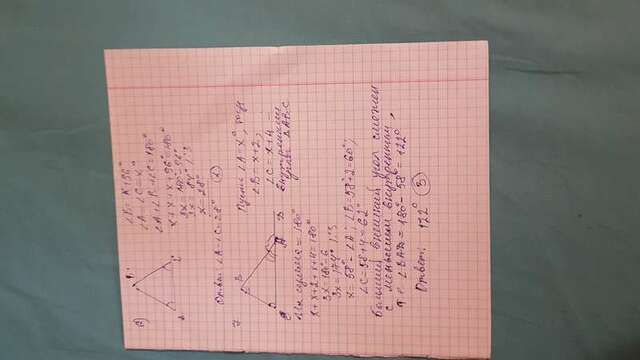 B
A
C
∠B = x+96°
∠A = ∠C = x°
∠A+∠B+∠C=180°
x+x+x+96°=180°
3x = 180°-96°
3x = 84° |:3
x = 28°
Ответ: ∠A=∠C=28° 2
7.
B
C
A
D
Пусть ∠A=x°, тогда
∠B = x+2,
∠C = x+4 —
внутренние
углы ΔABC
Их сумма = 180°
x+x+2+x+4=180°
3x=180°-6
3x=174° |:3
x = 58° - ∠A; ∠B=58°+2=60°;
∠C=58+4=62°
больший внешний угол смежен
с меньшим внутренним,
т.е ∠BAD = 180°- 58°= 122°
Ответ: 122° 3